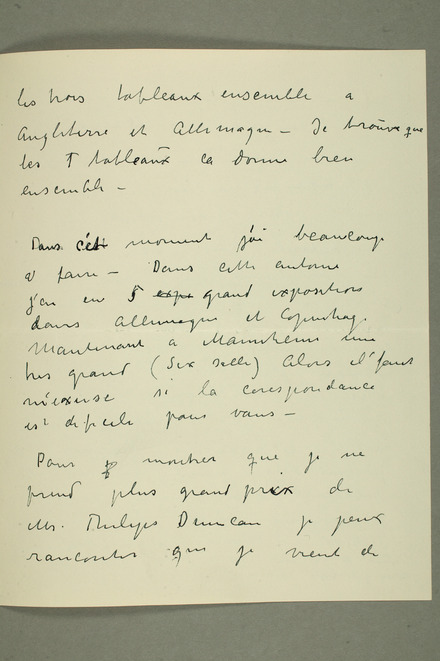 les trois tableaux ensemble a
Angleterre et Allemagne – Je trouve que
les T tableaux ca donne bien
ensemble –
Dans cett moment j'ai beaucoup
a faire – Dans cette automne
j'en en 5 grand expositions
dans Allemagne et Copenhag.
Maintenant a Mannheim une
tres grand (Six salle) Alors il faut
m'excuse si la corespondance
est dificile pour vous –
Pour montrer que je ne
prend plus grand prix de
Mr. Philips Duncan je peux
rancontes que je vient de